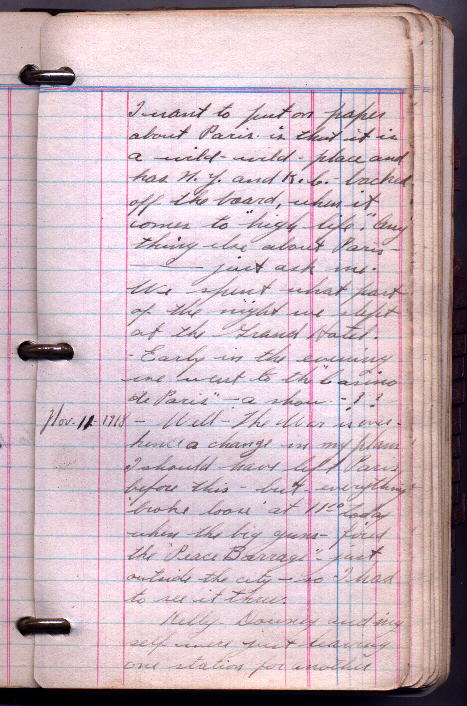 I want to put on paper
about Paris is that it is
a wild-wild-place and
has N.Y. and K.C. backed
off the board, when it
comes to "high life." Any
thing else about Paris-
—— just ask me.
We spent what part
of the night we slept
at the Grand Hotel.
- Early in the evening
we went to the "Casino
de Paris" - a show - ? ?
Nov. 11-1918 - Well - The War is over -
hence a change in my plans
I should have left Paris
before this - but - everything
"broke loose" at 11:00 today
when the big guns - fired
the "Peace Barrage" - just
outside the city - so I had
to see it thru.
Kelly, Downey and my
self were just leaving
one station for another